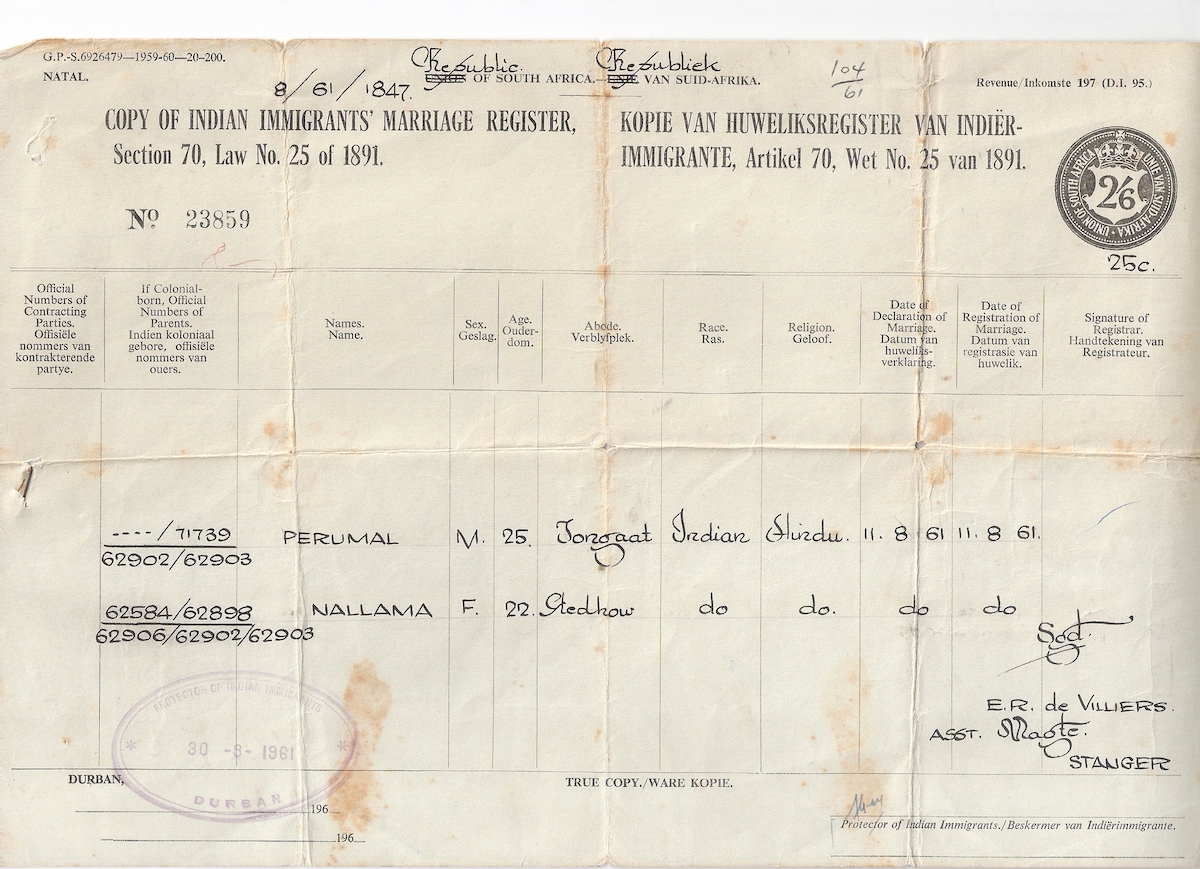 G.P.-S.6926479—1959-60—20-200.
NATAL.
Republic Republiek
UNION OF SOUTH AFRICA.—UNIE VAN SUID-AFRIKA.
8/61/1847.
104
61
Revenue/Inkomste 197 (D.I. 95.)
COPY OF INDIAN IMMIGRANTS' MARRIAGE REGISTER,
Section 70, Law No. 25 of 1891.
KOPIE VAN HUWELIKSREGISTER VAN INDIËR-
IMMIGRANTE, Artikel 70, Wet No. 25 van 1891.
UNION OF SOUTH AFRICA · UNIE VAN SUID-AFRIKA
2/6
25c.
No 23859
Official
Numbers of
Contracting
Parties.
Offisiële
nommers van
kontrakterende
partye.
If Colonial-
born, Official
Numbers of
Parents.
Indien koloniaal
gebore, offisiële
nommers van
ouers.
Names.
Name.
Sex.
Geslag.
Age.
Ouder-
dom.
Abode.
Verblyfplek.
Race.
Ras.
Religion.
Geloof.
Date of
Declaration of
Marriage.
Datum van
huweliks-
verklaring.
Date of
Registration of
Marriage.
Datum van
registrasie van
huwelik.
Signature of
Registrar.
Handtekening van
Registrateur.
----/71739 PERUMAL M. 25. Tongaat Indian Hindu. 11. 8 61 11. 8 61.
62902/62903
62584/62898 NALLAMA F. 22. Gledhow do do. do do
62906/62902/62903
Sgd.
E.R. de VILLIERS.
ASST. Magte.
STANGER
PROTECTOR OF INDIAN IMMIGRANTS
30 -8- 1961
DURBAN
DURBAN,
196
196
TRUE COPY./WARE KOPIE.
Protector of Indian Immigrants./Beskermer van Indiërimmigrante.